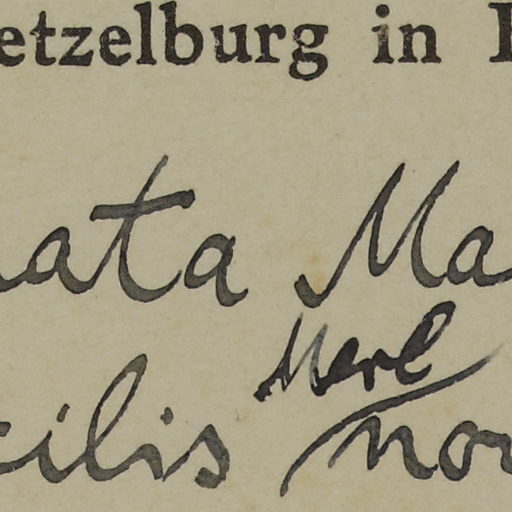 etzelburg in
ata Ma
Merl
cilis nov